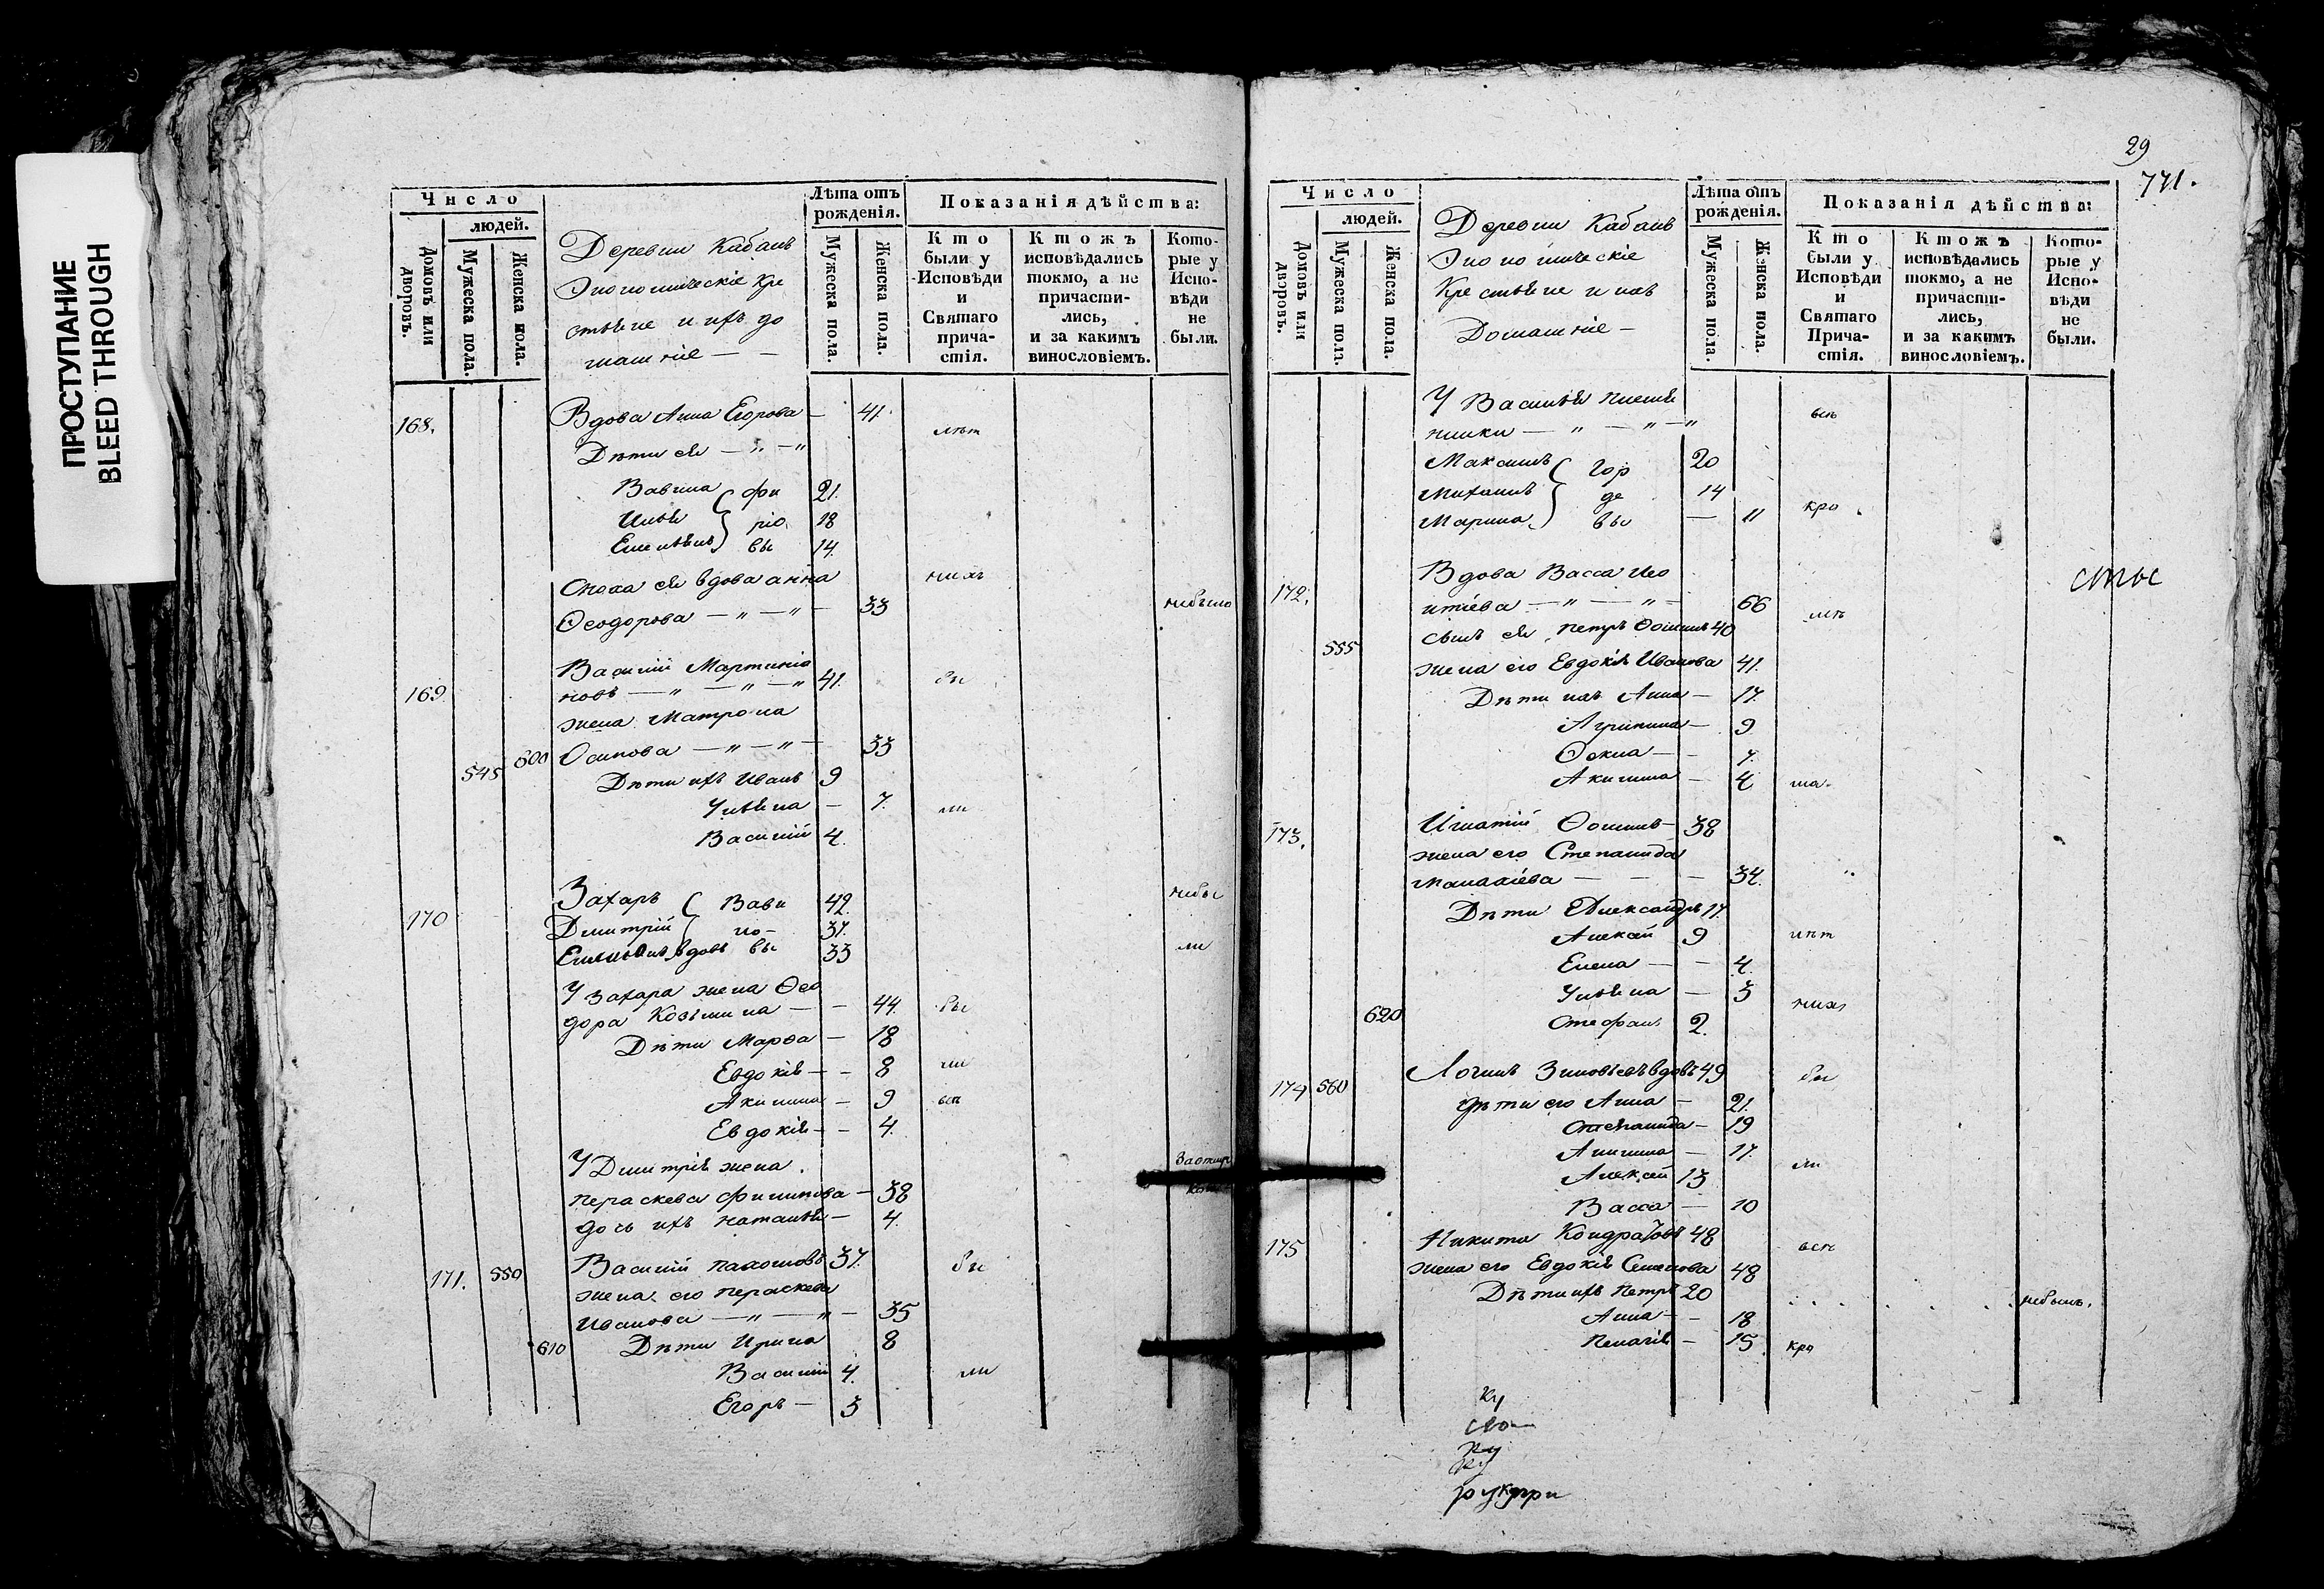 ПРОСТУПАНИЕ
BLEED THROUGH
Число
людей.
Домовъ или дворовъ.
Мужеска пола.
Женска пола.
Деревни Кабанъ
Экономическіе кре
стьяне и ихъ до
машніе — —
Лѣта отъ рожденія.
Мужеска пола.
Женска пола.
Показанія дѣйства:
Кто были у Исповѣди и Святаго причастія.
Ктожъ исповѣдались токмо, а не причастились, и за какимъ винословіемъ.
Которые у Исповѣди не были.
168. Вдова Анна Егорова — 41.
Дѣти ея — " — "
Вавила фи 21.
Илья ріо 18
Емельянъ вы 14.
сноха ея вдова анна
Ѳеодорова — " — " — 33 небыла
169 Василій Мартиніа
новъ — " — " — " 41. бы
жена Матрона
545 600 Осипова — " — " — 33
Дѣти ихъ Иванъ 9
Ульяна — 7. ли
Василій 4.
170 Захаръ Вави 42. небы
Дмитрій ло- 37.
Емельянъ вдовъ вы 33 ли
У Захара жена Ѳео
дора Козьмина — — 44. бы
Дѣти Марѳа — 18
Евдокія — — 8 ли
Акилина — 9 всп
Евдокія — — 4.
У Дмитрія жена
пераскева филипова — 38
дочь ихъ наталья — 4.
171. 550 Василій пахомовъ 37. бы
жена его пераскева
Иванова — " — " — 35
610 Дѣти Ирина 8
Василій 4. ли
Егоръ — 3
29
771.
Число
людей.
Домовъ или дворовъ.
Мужеска пола.
Женска пола.
Деревни Кабанъ
Экономическіе
Крестьяне и ихъ
Домашніе —
Лѣта отъ рожденія.
Мужеска пола.
Женска пола.
Показанія дѣйства:
Кто были у Исповѣди и Святаго Причастія.
Ктожъ исповѣдались токмо, а не причастились, и за какимъ винословіемъ.
Которые у Исповѣди не были.
У Василья племя
ники — " — " — "
Максимъ гор 20
Михаилъ де 14
Марина вы — 11 кро
172. Вдова Васса Лео
нтіева — " — " — 66
555 сынъ ея петръ Ѳоминъ 40
жена его Евдокія Иванова 41.
Дѣти ихъ Анна — 17.
Агрипина — 9
Ѳекла — — 7.
Акилина — 4
173. Игнатій Ѳоминъ — 38
жена его Степанида
Малахіева — — — 34.
Дѣти Александръ 17
Алексѣй 9
Елена — — 4.
Ульяна — 3
620 Стефанъ 2.
174 560 Логинъ Зиновьевъ вдовъ 49 бы
дѣти его Анна — 21.
Степанида — 19
Акилина — 17. ли
Алексѣй 13
Васса — 10
175 Никита Кондратовъ 48 всп
жена его Евдокія Семенова 48
Дѣти ихъ Петръ 20 небылъ.
Анна — — 18
Пелагія — 15 кро
ку
ру